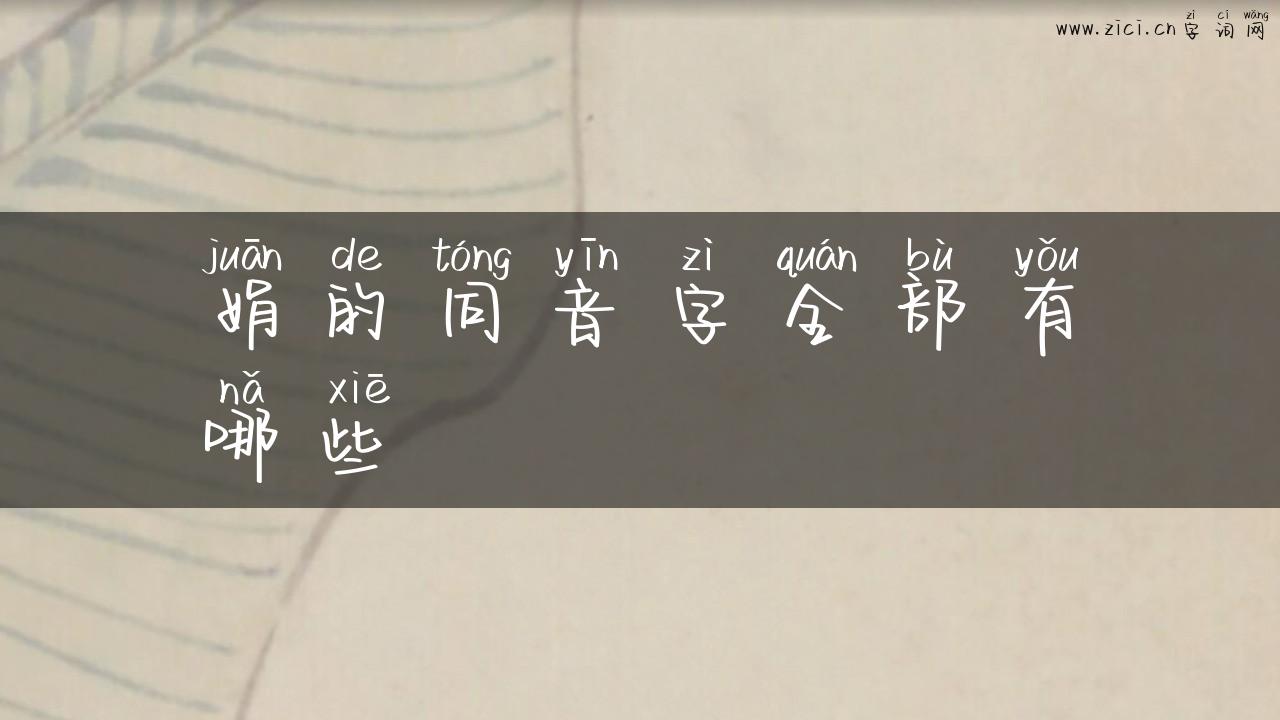 zì cí wǎng
www.zici.cn 字词网
juān de tóng yīn zì quán bù yǒu
娟的同音字全部有
nǎ xiē
哪些